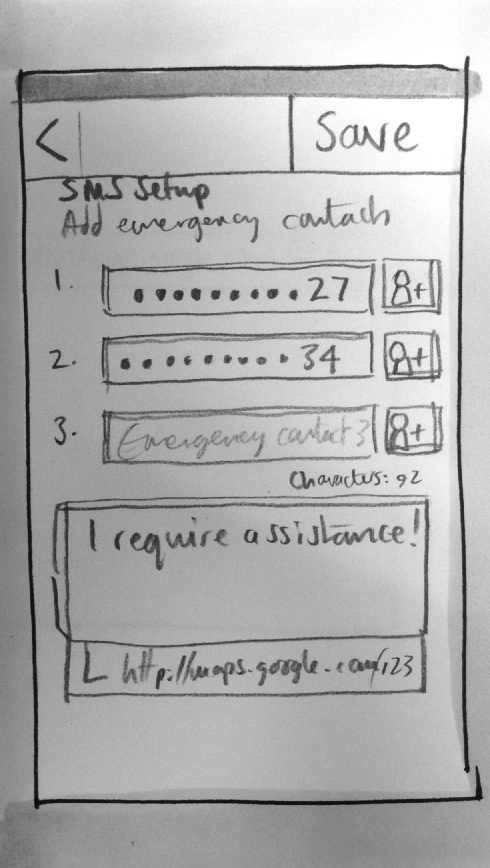 < Save
SMS Setup
Add emergency contacts
1. .........27
2. .........34
3. Emergency contact 3
Characters: 92
I require assistance!
L http://maps.google.com/123